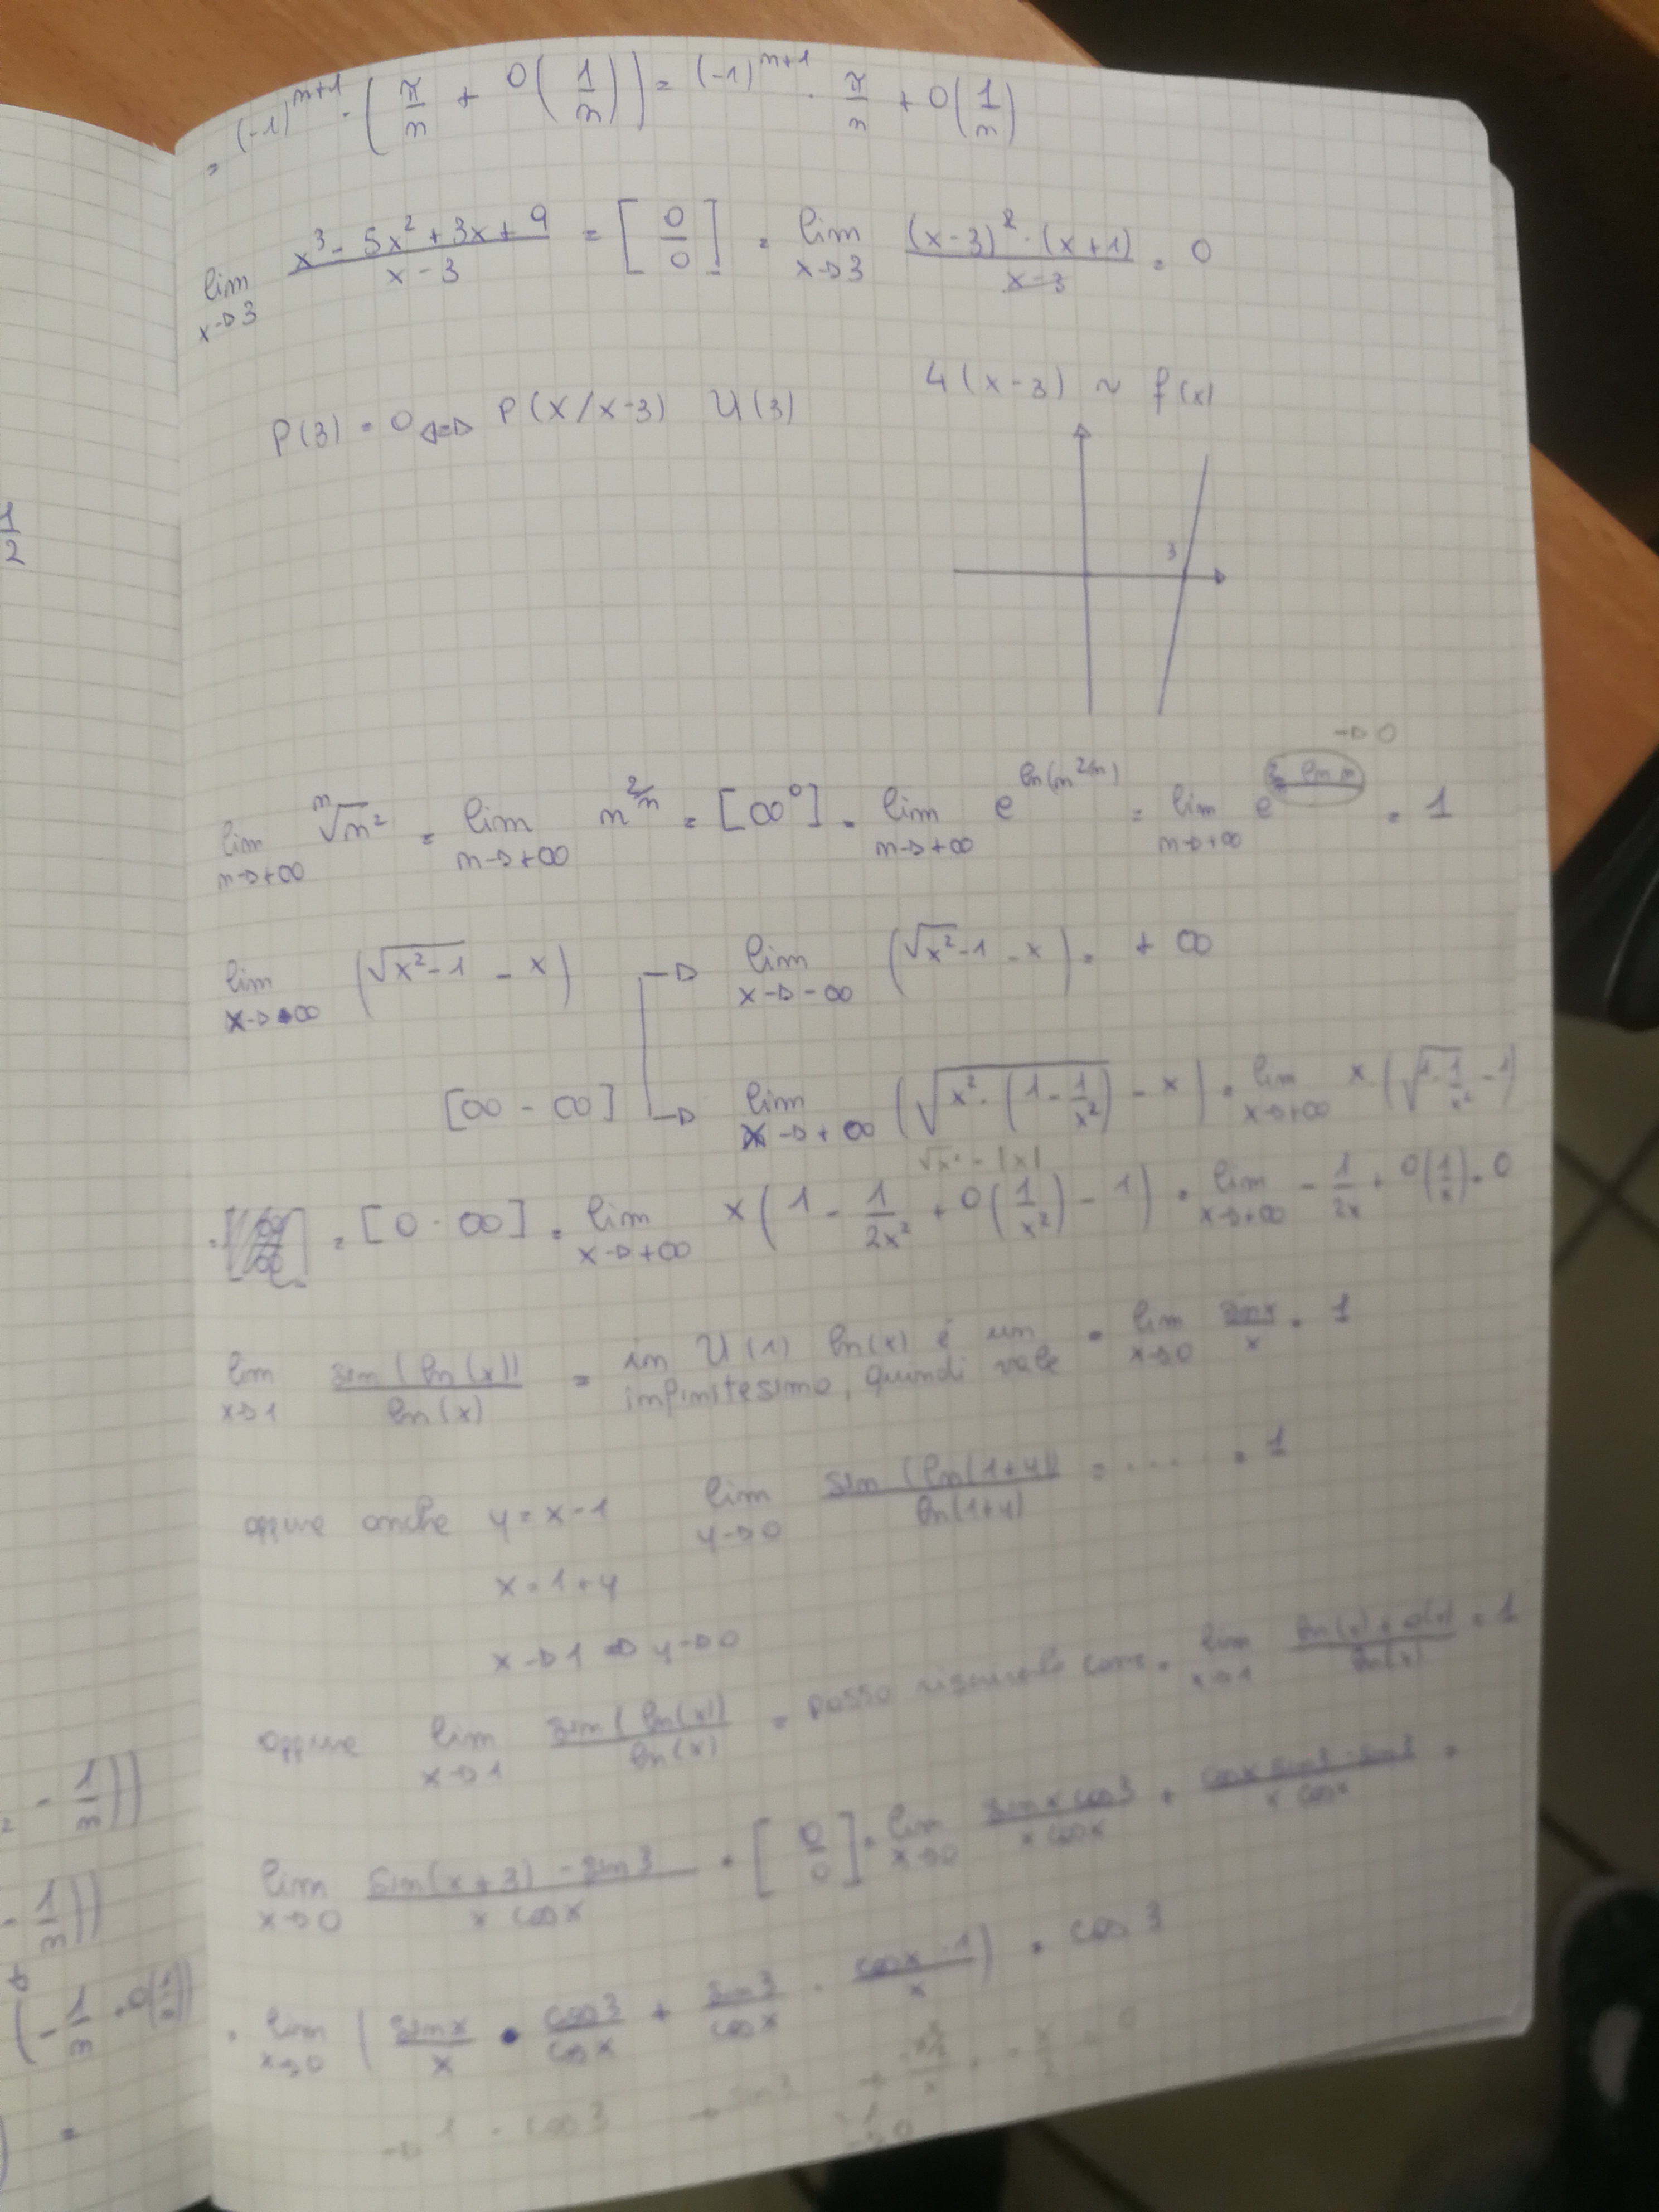 = (-1)^{n+1} · (π/n + o(1/n)) = (-1)^{n+1} · π/n + o(1/n)
lim x→3 (x³ - 5x² + 3x + 9)/(x - 3) = [0/0] = lim x→3 ((x-3)² · (x+1))/(x-3) = 0
4(x-3) ~ f(x)
P(3) = 0 ⇔ P(x/x-3) U(3)
3
1/2
→ 0
lim n→+∞ ⁿ√n² = lim n→+∞ n^{2/n} = [∞⁰] = lim n→+∞ e^{ln(n^{2/n})} = lim n→+∞ e = 1
lim x→∞ (√(x²-1) - x) → lim x→-∞ (√(x²-1) - x) = +∞
[∞ - ∞] → lim x→+∞ (√(x² · (1 - 1/x²)) - x) = lim x→+∞ x · (√(1 - 1/x²) - 1)
√x² = |x|
= [0 · ∞] = lim x→+∞ x(1 - 1/2x² + o(1/x²) - 1) = lim x→+∞ - 1/2x + o(1/x) = 0
lim x→1 sin(ln(x))/ln(x) = in U(1) ln(x) é un = lim x→0 sin x/x = 1
infinitesimo, quindi vale
oppure anche y = x - 1 lim y→0 sin(ln(1+y))/ln(1+y) = ..... = 1
x = 1 + y
x→1 ⇒ y→0
oppure lim x→1 sin(ln(x))/ln(x) = posso come = lim x→1 /ln(x) = 1
lim x→0 (sin(x+3) - sin3)/(x cos x) = [0/0] = lim x→0 (sin x cos3)/(x cos x) + (cos x sin3 - sin3)/(x cos x) =
= lim x→0 (sin x/x · cos3/cos x + sin3/cos x · (cos x - 1)/x) = cos 3
→ 1 · cos3 → sin3 → = - x/2 → 0
- 1/n))
- 1/n))
(- 1/n + o(1/n))
=